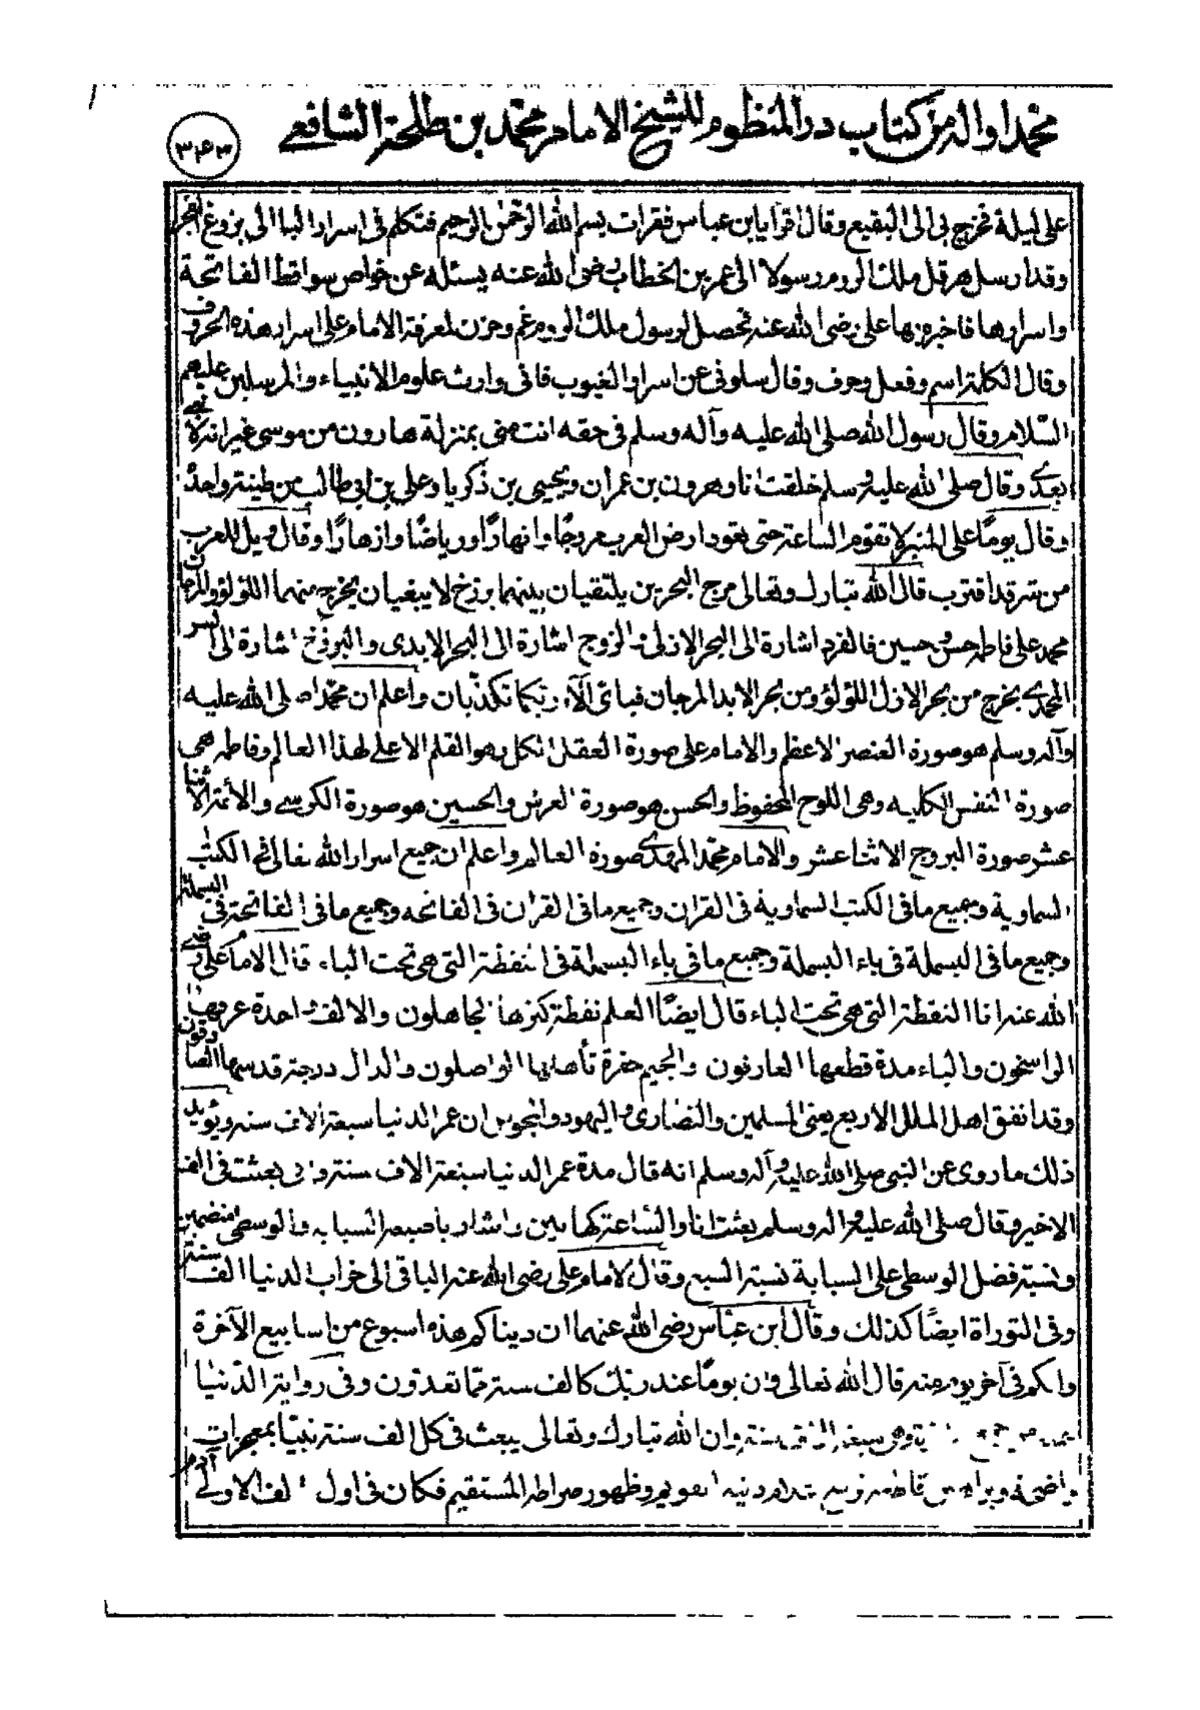 محمد اواله من كتاب در المنظوم للشيخ الامام محمد بن طلحة الشافعي
٣٤٣
على ليلة فخرج بي الى البقيع وقال اقرأ يا ابن عباس فقرات بسم الله الرحمن الرحيم فتكلم في اسرار الباء الى بزوغ الفجر
وقد ارسل هرقل ملك الروم رسولا الى عمر بن الخطاب رضي الله عنه يسئله عن خواص سواقط الفاتحة
واسرارها فاخبره بها علي رضي الله عنه فحصل لرسول ملك الروم غم وحزن لمعرفة الامام علي اسرار هذه الحروف
وقال الكلمة اسم وفعل وحرف وقال سلوني عن اسرار الغيوب فاني وارث علوم الانبياء والمرسلين عليهم
السلام وقال رسول الله صلى الله عليه وآله وسلم في حقه انت مني بمنزلة هارون من موسى غير انه لا نبي
بعدي وقال صلى الله عليه وسلم خلقت انا وهرون بن عمران ويحيى بن ذكريا وعلي بن ابي طالب من طينة واحدة
وقال يومًا على المنبر لا تقوم الساعة حتى يعود ارض العرب عروجًا وانهارًا ورياضًا وازهارًا وقال ويل للعرب
من شر قد اقترب قال الله تبارك وتعالى مرج البحرين يلتقيان بينهما برزخ لا يبغيان يخرج منهما اللؤلؤ والمرجان
محمد علي فاطمه حسن حسين فالفرد اشارة الى البحر الازلي والزوج اشارة الى البحر الابدي والبرزخ اشارة الى السر
المحمدي يخرج من بحر الازل اللؤلؤ ومن بحر الابد المرجان فباي آلاء ربكما تكذبان واعلم ان محمدا صلى الله عليه
وآله وسلم هو صورة العنصر الاعظم والامام علي صورة العقل الكل وهو القلم الاعلى لهذا العالم وفاطمه هي
صورة النفس الكليه وهي اللوح المحفوظ والحسن هو صورة العرش والحسين هو صورة الكرسي والائمة الاثنا
عشر صورة البروج الاثنا عشر والامام محمد المهدي صورة العالم واعلم ان جميع اسرار الله تعالى في الكتب
السماوية وجميع ما في الكتب السماوية في القران وجميع ما في القران في الفاتحه وجميع ما في الفاتحة في البسملة
وجميع ما في البسملة في باء البسملة وجميع ما في باء البسملة في النقطة التي هي تحت الباء قال الامام علي رضي
الله عنه انا النقطة التي هي تحت الباء قال ايضًا العلم نقطة كثرها الجاهلون والالف واحدة عرفها
الراسخون والباء مدة قطعها العارفون والجيم حفرة تأهلها الواصلون والدال درجة قدسها الصادقون
وقد اتفق اهل الملل الاربع يعني المسلمين والنصارى واليهود والمجوس ان عمر الدنيا سبعة الاف سنة ويؤيد
ذلك ما روي عن النبي صلى الله عليه وآله وسلم انه قال مدة عمر الدنيا سبعة الاف سنة واني بعثت في الالف
الاخير وقال صلى الله عليه واله وسلم بعثت انا والساعة كهاتين واشار باصبعه السبابه والوسطى منضمين
ونسبة فضل الوسطى على السبابة نسبة السبع وقال الامام علي رضي الله عنه الباقي الى خراب الدنيا الف سنة
وفي التوراة ايضًا كذلك وقال ابن عباس رضي الله عنهما ان ديناكم هذه اسبوع من اسابيع الآخرة
وانكم في آخر يوم منه قال الله تعالى وان يومًا عند ربك كالف سنة مما تعدون وفي رواية الدنيا
جمعة وهي سبعة الاف سنة وان الله تبارك وتعالى يبعث في كل الف سنة نبيًا بمعجزات
واضحة وبراهين قاطعة دينه القويم وظهور صراطه المستقيم فكان في اول الالف الاولى آدم